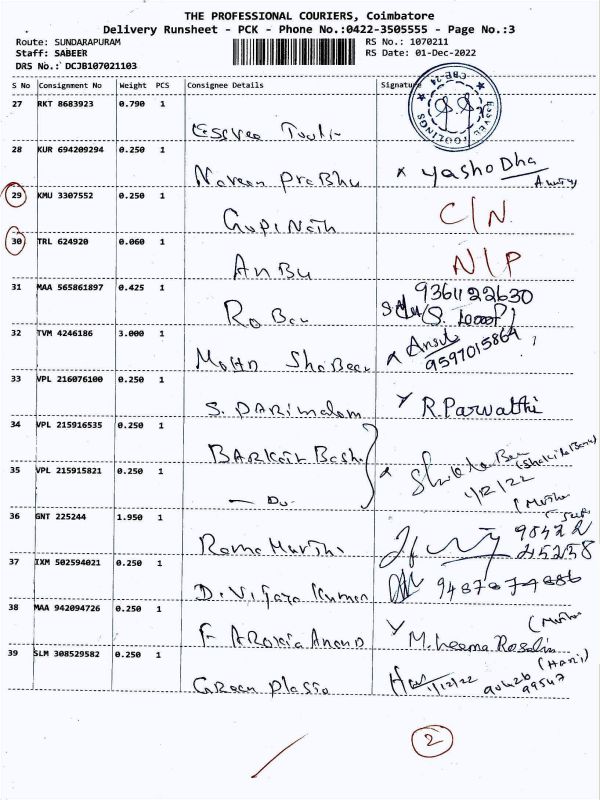 THE PROFESSIONAL COURIERS, Coimbatore
Delivery Runsheet - PCK - Phone No.:0422-3505555 - Page No.:3
Route: SUNDARAPURAM RS No.: 1070211
Staff: SABEER RS Date: 01-Dec-2022
DRS No.: DCJB107021103
S No Consignment No Weight PCS Consignee Details Signature
27 RKT 8683923 0.790 1
ESSVEE TOOLINGS CBE-24
Essvee
28 KUR 694209294 0.250 1
Naveen Prabhu x YashoDha
29 KMU 3307552 0.250 1
Gopinath C/N
30 TRL 624920 0.060 1
AnBu N/P
31 MAA 565861897 0.425 1 9361122630
32 TVM 4246186 3.000 1
Mohd Shabeer 9597015864
33 VPL 216076100 0.250 1
S. Parimalam R. Parvathi
34 VPL 215916535 0.250 1
Barkath Basha
35 VPL 215915821 0.250 1 1/12/22
— Do —
36 GNT 225244 1.950 1
Rama Murthi
37 IXM 502594021 0.250 1
D. Vijaya Kumar
38 MAA 942094726 0.250 1
F. Arokia Anand
39 SLM 308529582 0.250 1 (Hari)
Green 1/12/22
2